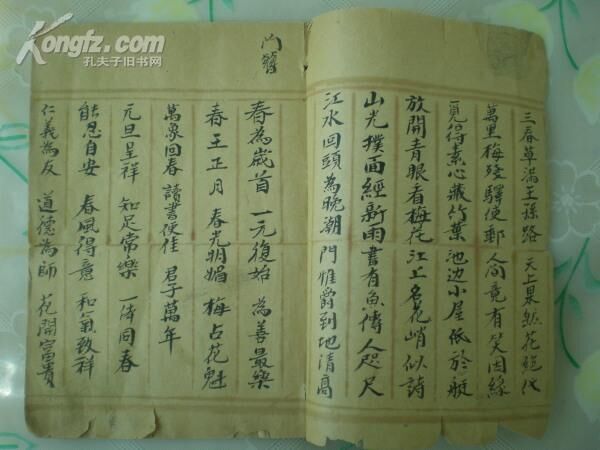 Kongfz.com
孔夫子旧书网
三春草滿王孫路 天上果然花絕代
萬里梅殘驛使郵 人间竟有笑因緣
覓得素心藏竹葉 池边小屋低於艇
放開青眼看梅花 江上名花峭似詩
山光撲面經新雨 書有魚傳人咫尺
江水回頭為晚潮 門惟爵到地清高
门
春為歲首 一元復始 為善最樂
春王正月 春光明媚 梅占花魁
萬象回春 讀書便佳 君子萬年
元旦呈祥 知足常樂 一済同春
能忍自安 春風得意 和氣致祥
仁義為友 道德為師 花開富貴